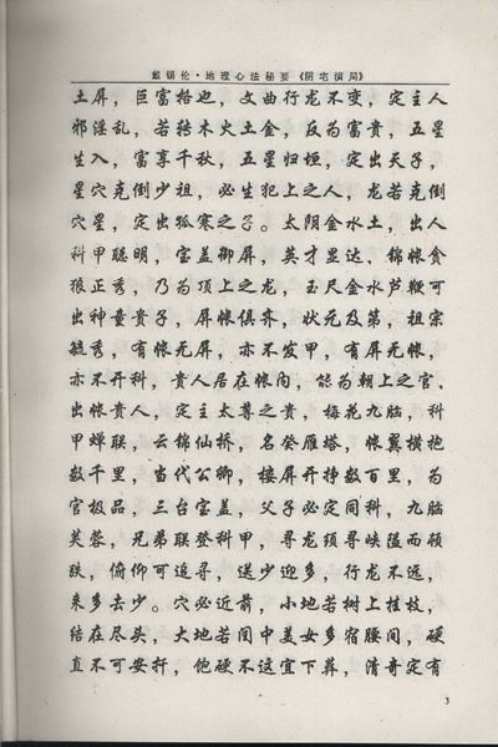 戴锡伦·地理心法秘要《阴宅演局》
土屏，巨富格也，文曲行龙不变，定主人
邪淫乱，若转木火土金，反为富贵，五星
生入，富享千秋，五星归垣，定出天子，
星穴克倒少祖，必生犯上之人，龙若克倒
穴星，定出孤寒之子。太阴金水土，出人
科甲聪明，宝盖御屏，英才显达、锦帐贪
狼正秀，乃为顶上之龙，玉尺金水芦鞭可
出神童贵子，屏帐俱齐，状元及第，祖宗
毓秀，有帐无屏，亦不发甲，有屏无帐，
亦不开科，贵人居在帐内，能为朝上之官、
出帐贵人，定主太尊之贵，梅花九脑，科
甲蝉联，云锦仙桥，名登雁塔，帐翼横抱
数千里，当代公卿，楼屏开挣数百里，为
官极品，三台宝盖，父子必定同科，九脑
芙蓉，兄弟联登科甲，寻龙须寻峡隘而顿
跌，俯仰可追寻，送少迎多，行龙不远，
来多去少。穴必近前，小地若树上挂枝，
结在尽头，大地若闺中美女多宿腰间，硬
直不可安扦，饱硬不这宜下葬，清奇定有
3